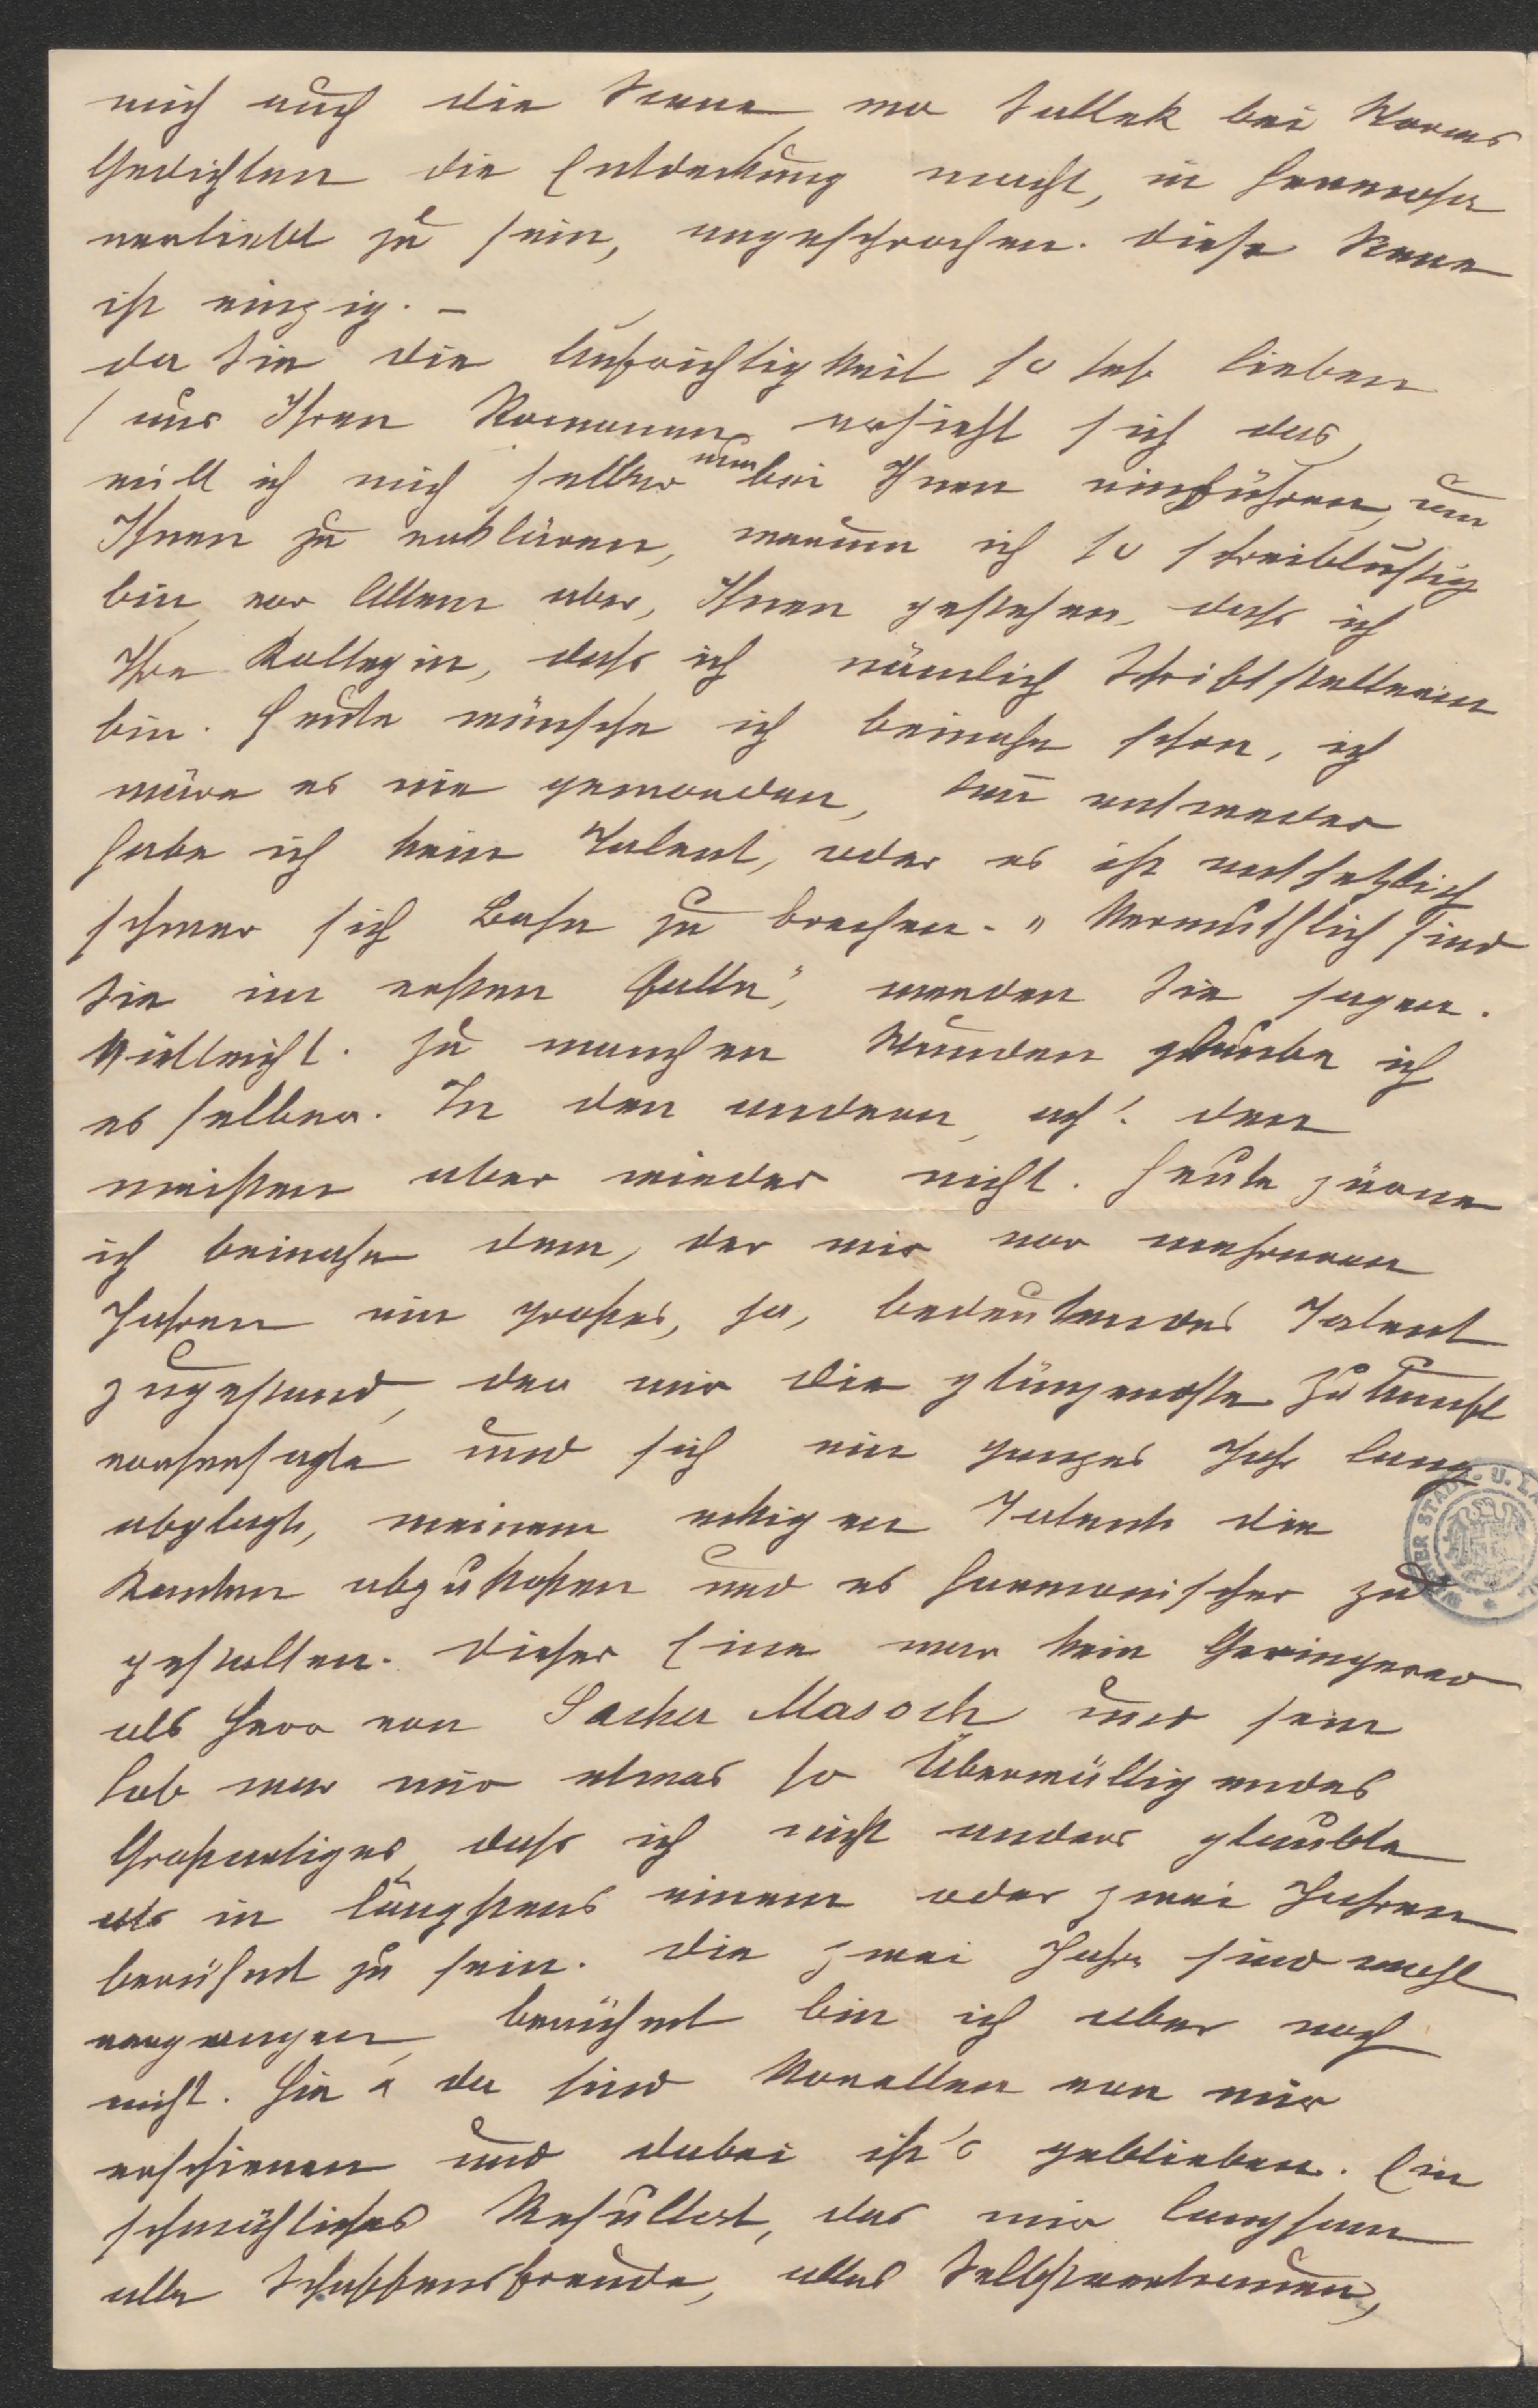 mich auch die Scene, wo Sallek bei Worms
Gedichten die Entdeckung macht, in Hermosa
verliebt zu sein, angesprochen. Diese Scene
ist einzig. –
Da Sie die Aufrichtigkeit so sehr lieben
(aus Ihren Romanen ersieht sich das,
will ich mich selber nun bei Ihnen einführen, um
Ihnen zu erklären, warum ich so schreiblustig
bin, vor Allem aber, Ihnen gestehen, daß ich
Ihre Kollegin, daß ich nämlich Schriftstellerin
bin. Heute wünsche ich beinahe schon, ich
wäre es nie geworden, den̄ entweder
habe ich kein Talent, oder es ist entsetzlich
schwer sich Bahn zu brechen. „Vermuthlich sind
Sie im ersten Falle", werden Sie sagen.
Vielleicht. Zu manchen Stunden glaube ich
es selber. In den andern, ach! den
meisten aber wieder nicht. Heute zürne
ich beinahe dem, der mir vor mehreren
Jahren ein großes, ja, bedeutendes Talent
zugestand, der mir die glänzendste Zukunft
vorhersagte und sich ein ganzes Jahr lang
abplagte, meinem eckigen Talente die
Kanten abzustoßen und es harmonischer zu
gestalten. Dieser Eine war kein Geringerer
als Herr von Sacher Masoch und sein
Lob war mir etwas so Überwältigendes
Großartiges, daß ich nicht anders glaubte
als in längstens einem oder zwei Jahren
berühmt zu sein. Die zwei Jahre sind wohl
vergangen, berühmt bin ich aber noch
nicht. Hie & da sind Novellen von mir
erschienen und dabei ist's geblieben. Ein
schmähliches Resultat, das mir langsam
alle Schaffensfreude, alles Selbstvertrauen,